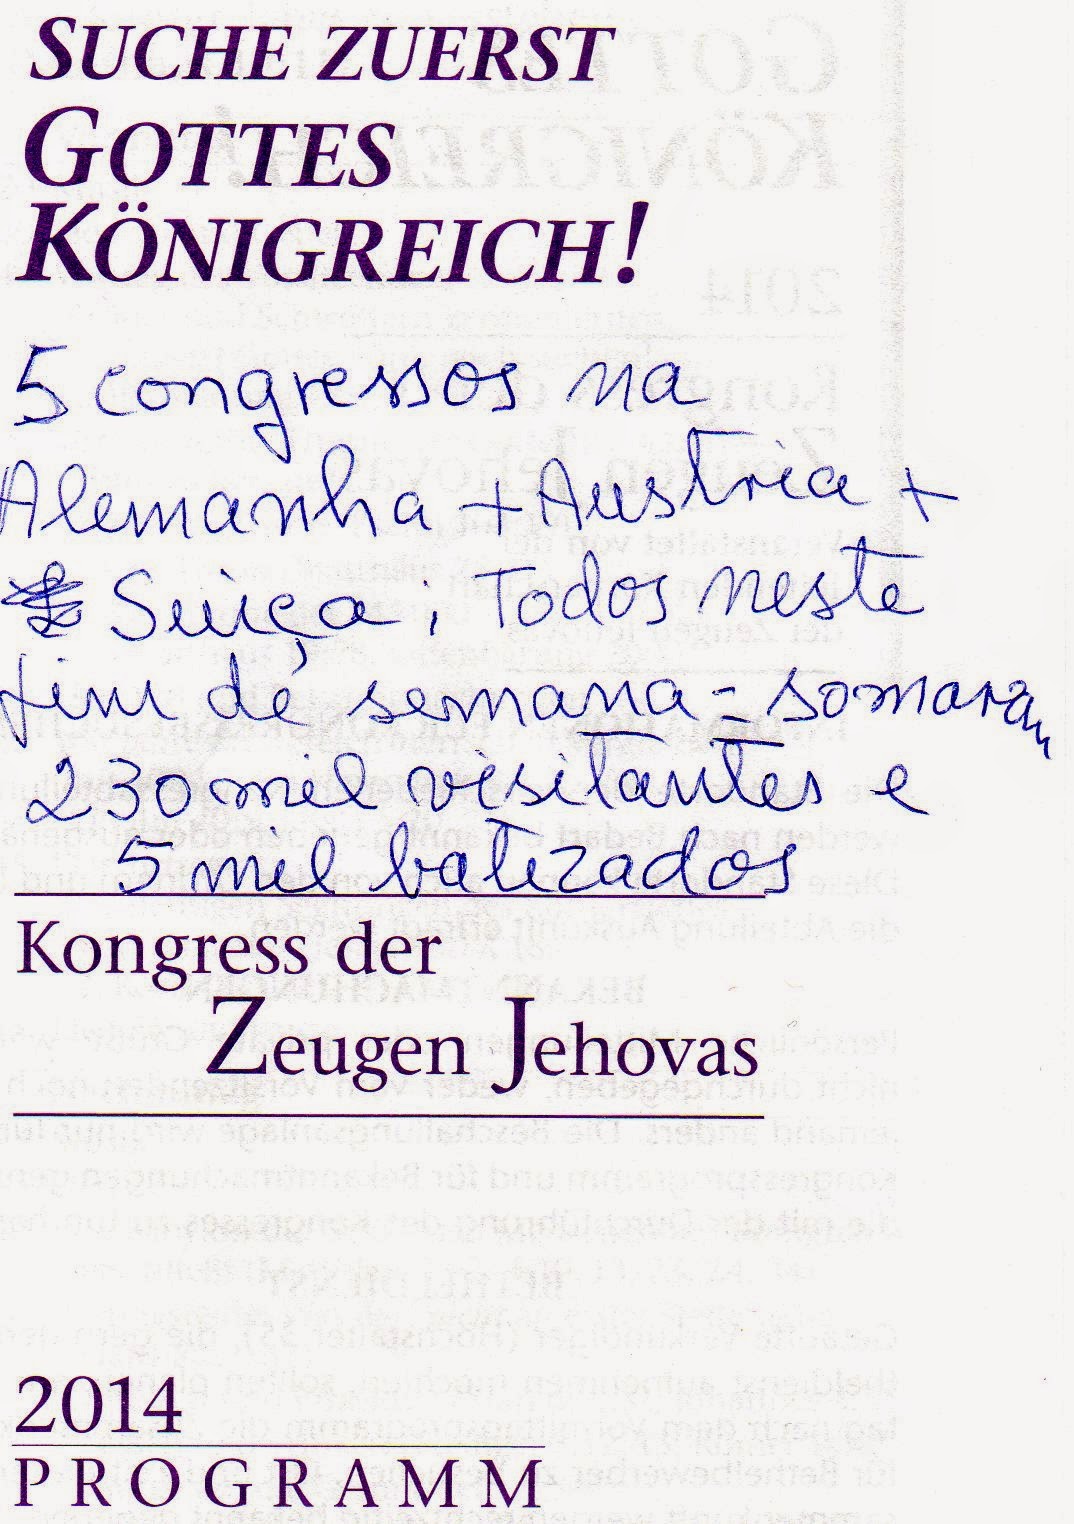 SUCHE ZUERST
GOTTES
KÖNIGREICH!
5 congressos na
Alemanha + Austria +
Suiça; Todos neste
fim de semana = somaram
230 mil visitantes e
5 mil batizados
Kongress der
Zeugen Jehovas
2014
PROGRAMM